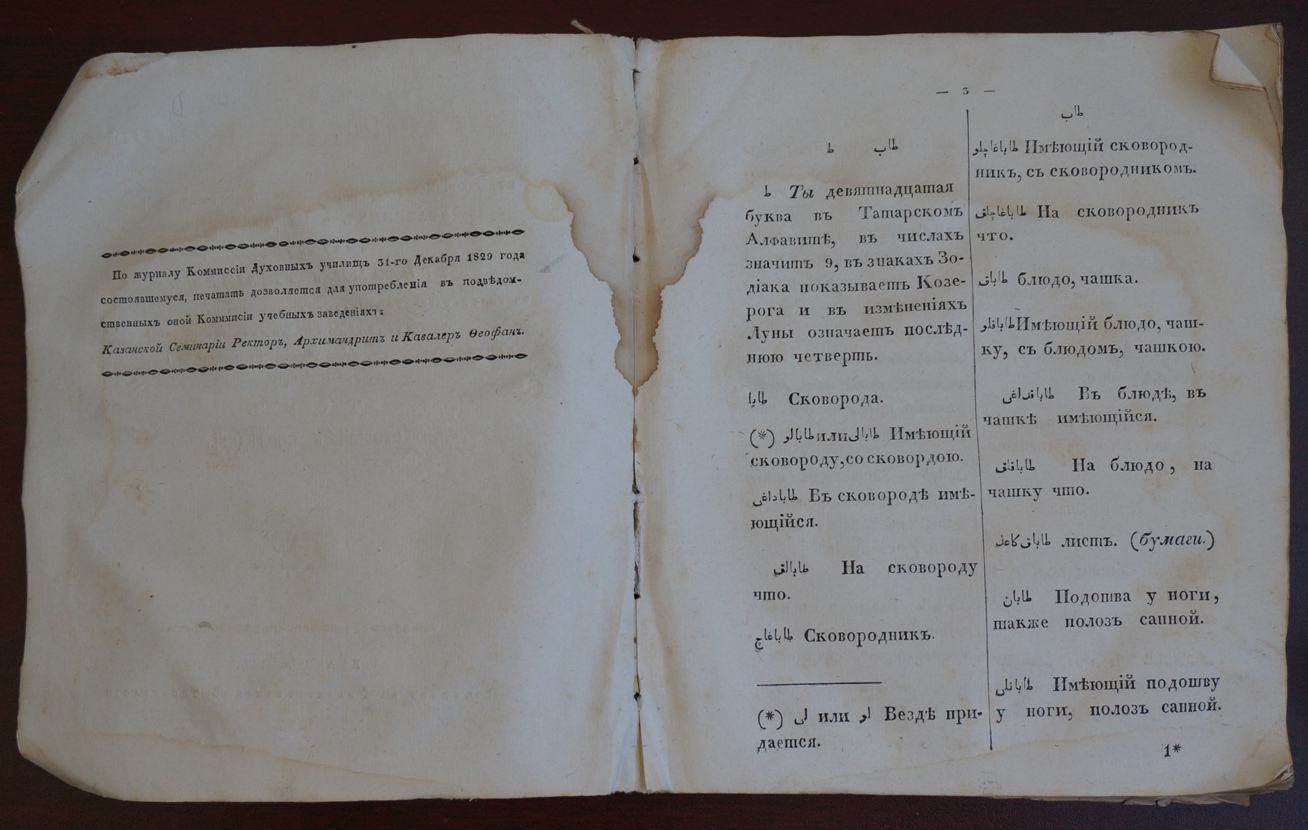 По журналу Коммиссіи Духовныхъ училищъ 31-го Декабря 1829 года
состоявшемуся, печатать дозволяется для употребленія въ подвѣдом-
ственныхъ оной Коммисіи учебныхъ заведеніяхъ:
Казанской Семинаріи Ректоръ, Архимандритъ и Кавалеръ Ѳеофанъ.
— 3 —
ط طاب
ط Ты девятнадцатая
буква въ Татарскомъ
Алфавитѣ, въ числахъ
значитъ 9, въ знакахъ Зо-
діака показываетъ Козе-
рога и въ измѣненіяхъ
Луны означаетъ послѣд-
нюю четверть.
طابا Сковорода.
(*) طابالو или طابالی Имѣющій
сковороду, со сковордою.
طاباداغی Въ сковородѣ имѣ-
ющійся.
طابالق На сковороду
что.
طاباغاچ Сковородникъ.
(*) لی или لو Вездѣ при-
дается.
طاب
طاباغاچلو Имѣющій сковород-
никъ, съ сковородникомъ.
طاباغاچلق На сковородникъ
что.
طاباق блюдо, чашка.
طاباقلو Имѣющій блюдо, чаш-
ку, съ блюдомъ, чашкою.
طاباقداغی Въ блюдѣ, въ
чашкѣ имѣющійся.
طاباقلق На блюдо, на
чашку что.
طاباق كاغذ листъ. (бумаги.)
طابان Подошва у ноги,
также полозъ санной.
طابانلی Имѣющій подошву
у ноги, полозъ санной.
1*